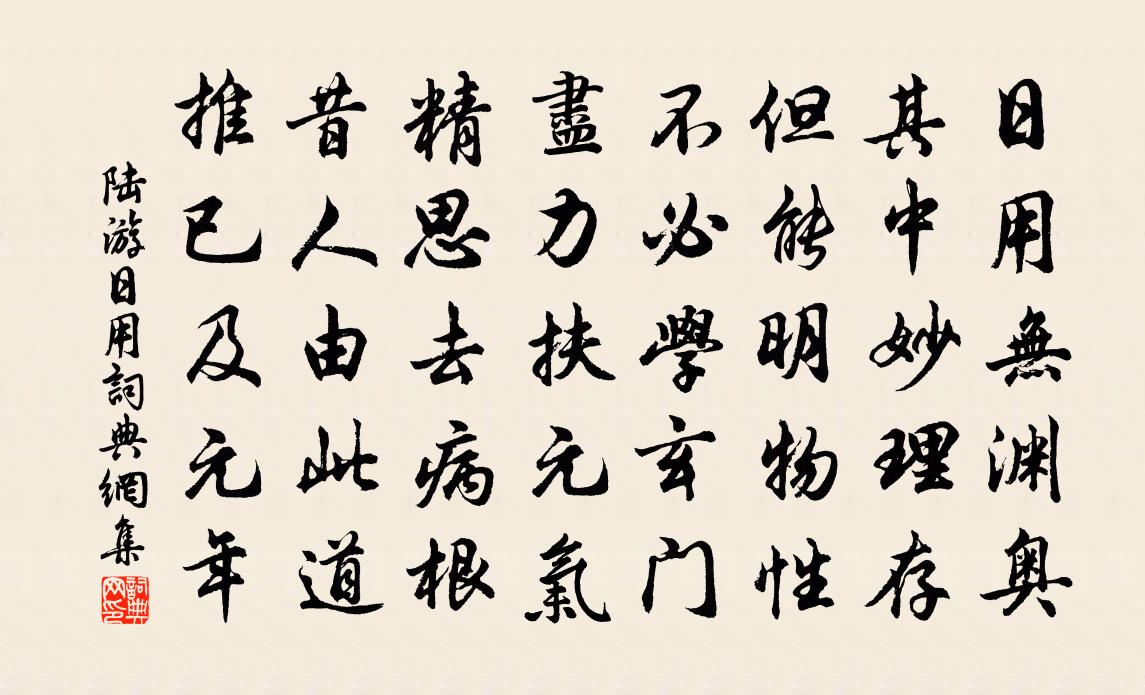 日用無渊奥
其中妙理存
但能明物性
不必學玄门
盡力扶元氣
精思去病根
昔人由此道
推已及元年
陆游日用詞典網集
詞典网印